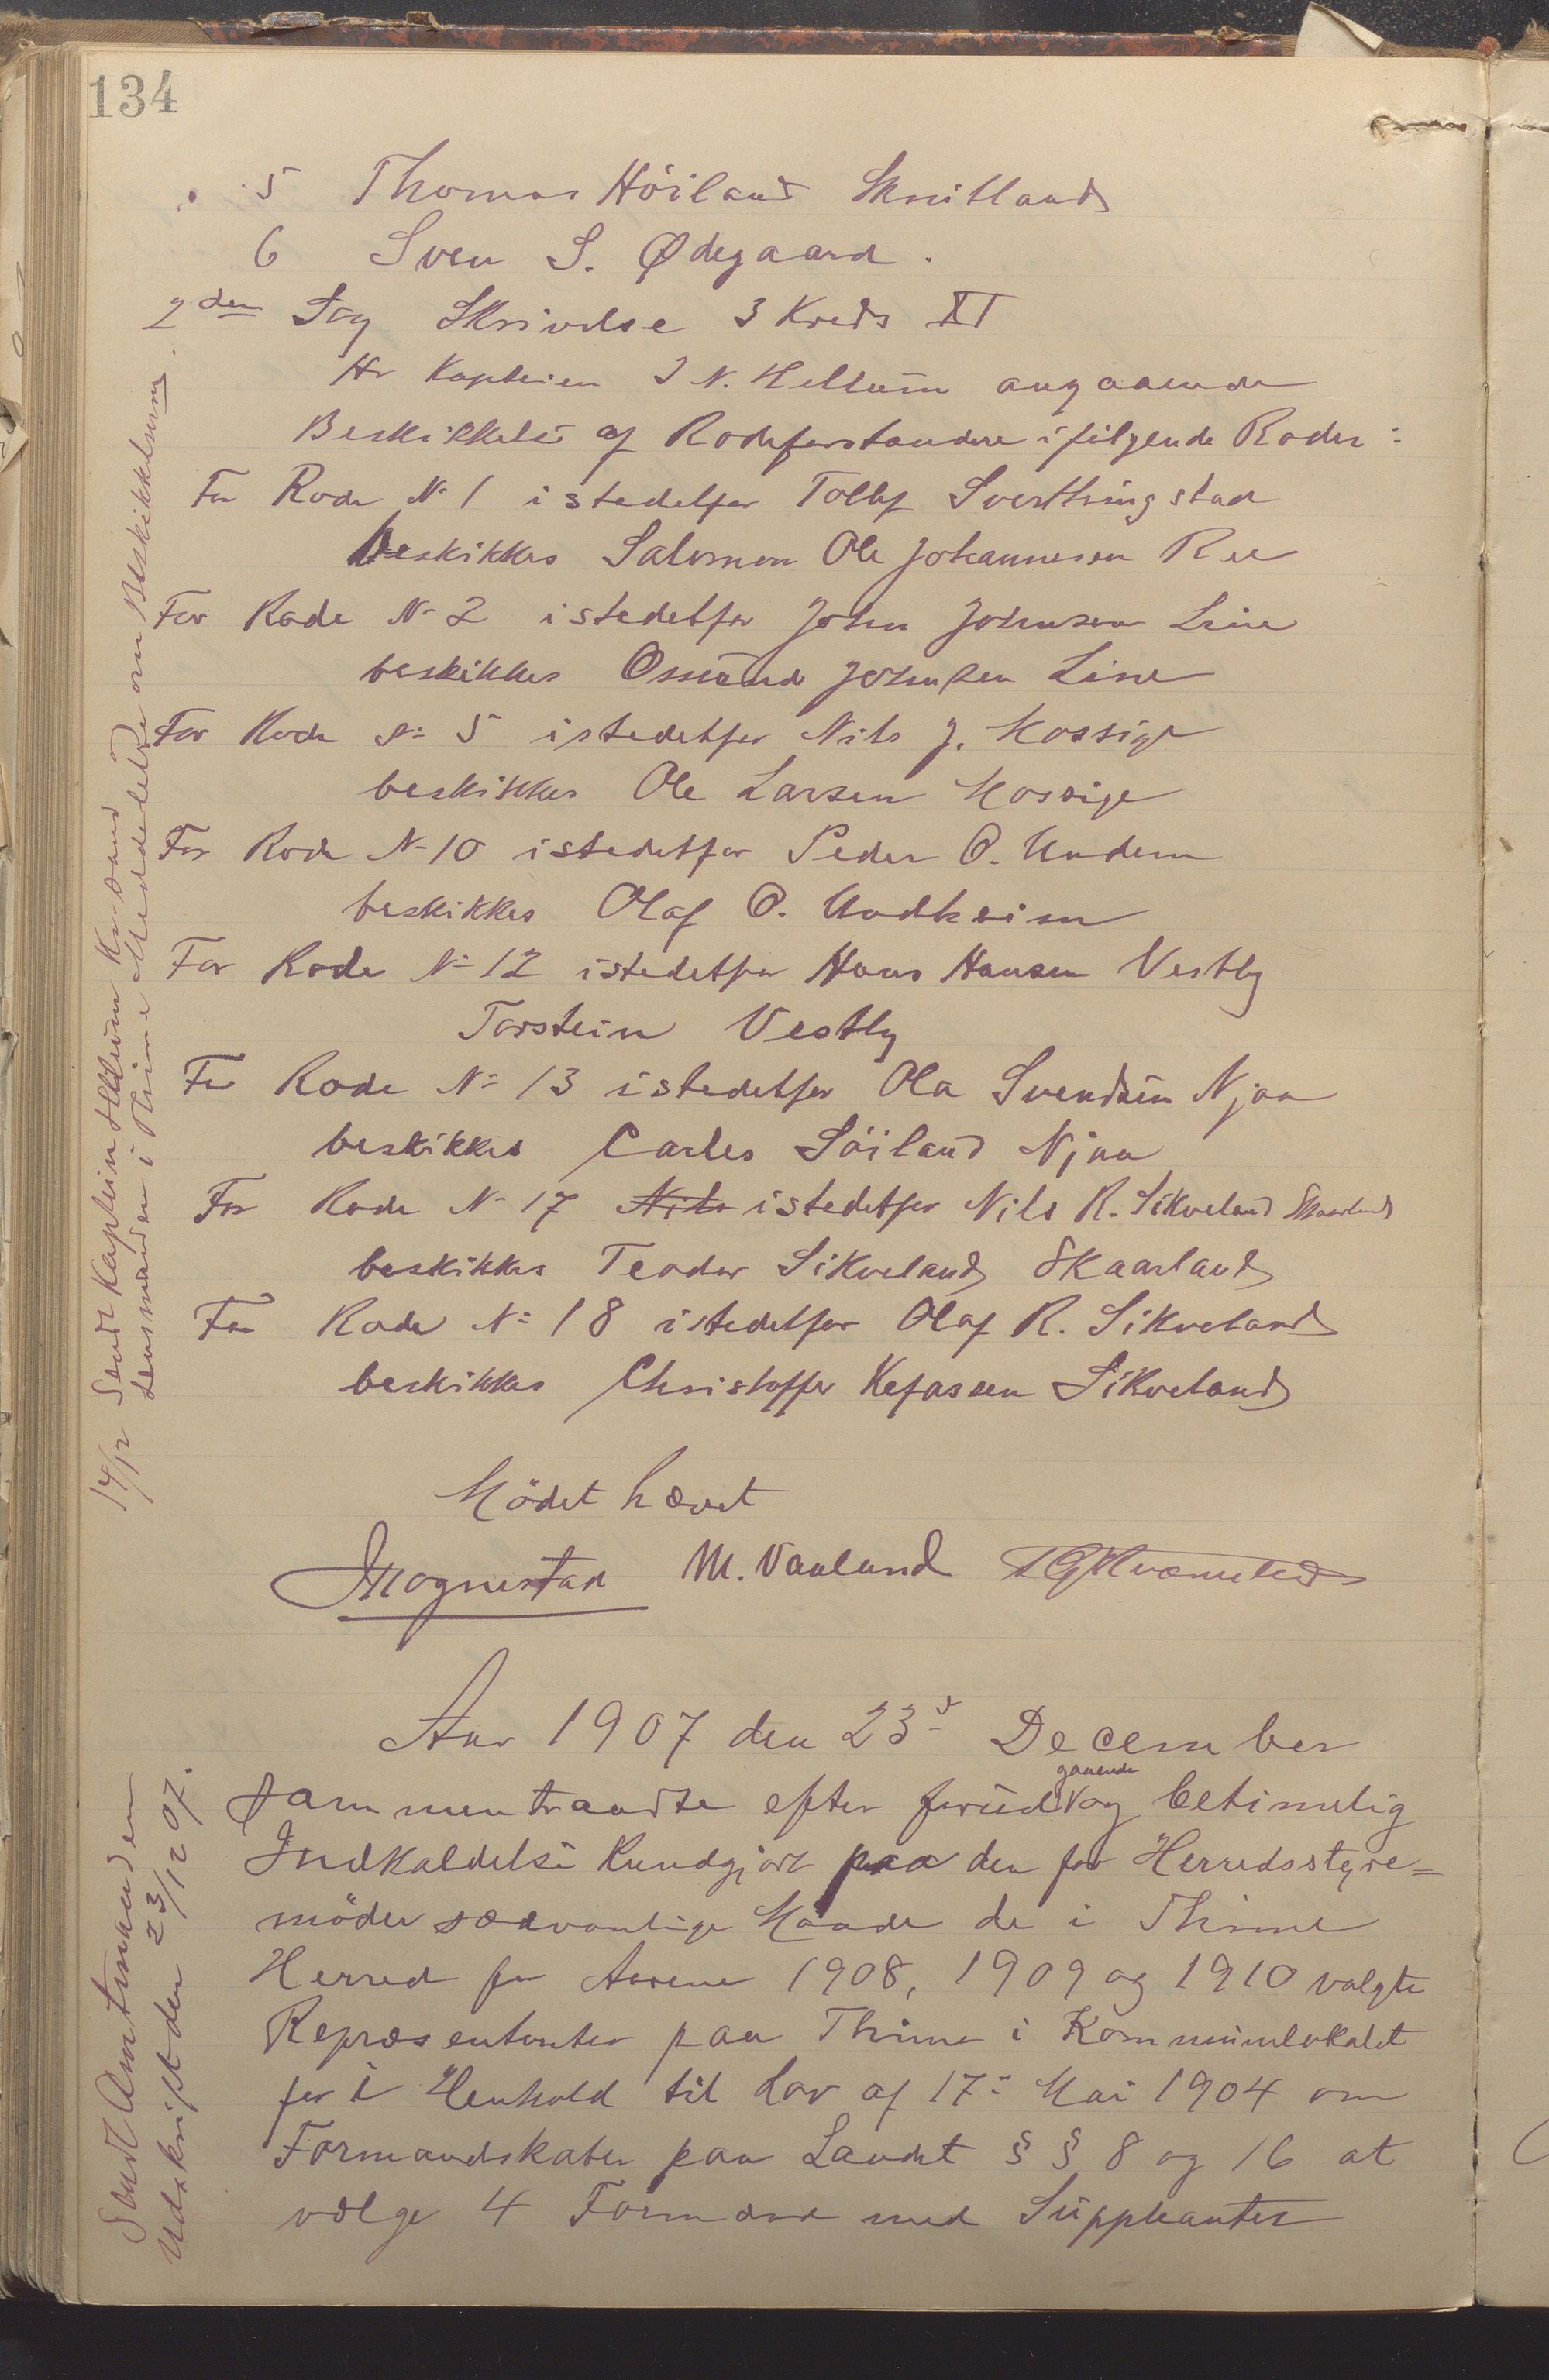 134
5 Thomas Höiland Knutland
6 Sven S. Ødegaard.
2den Sag Skrivelse 3 Kreds XI
Hr Kaptein J N. Hellum angaaende
Beskikkelse af Rodeforstandere i følgende Roder:
For Rode No 1 istedetfor Tollef Sverthingstad
beskikkes Salomon Ole Johannesen Ree
For Rode No 2 istedetfor John Johnsen Line
beskikkes Osmund Johnsen Line
For Rode No 5 istedetfor Nils J. Mossige
beskikkes Ole Larsen Mossige
For Rode No 10 istedetfor Peder O. Undem
beskikkes Olaf O. Undheim
For Rode No 12 istedetfor Hans Hansen Vestly
Torstein Vestly
For Rode No 13 istedetfor Ola Svendsen Njaa
beskikkes Carles Söiland Njaa
For Rode No 17 Nils istedetfor Nils R. Sikveland Skaarland
beskikkes Teodor Sikveland Skaarland
For Rode No 18 istedetfor Olaf R. Sikveland
beskikkes Christoffer Kefassen Sikveland
Mödet hævet
M. Vauland
14/12 Sendt Kaptein Hellum Kr.sand
Lensmanden i Thime Meddelelse om Beskikkelserne.
Aar 1907 den 23d December
sammentraadte efter forudgaaende og betimelig
Indkaldelse kundgjort paa den for Herredsstyre=
möder sædvanlige Maade de i Thime
Herred for Aarene 1908, 1909 og 1910 valgte
Repræsentanter paa Thime i Kommunelokalet
for i Henhold til Lov af 17de Mai 1904 om
Formandskaber paa Landet § § 8 og 16 at
vælge 4 Formænd med Suppleanter
Sendt Amtmanden
Udskrift den 23/12 07.